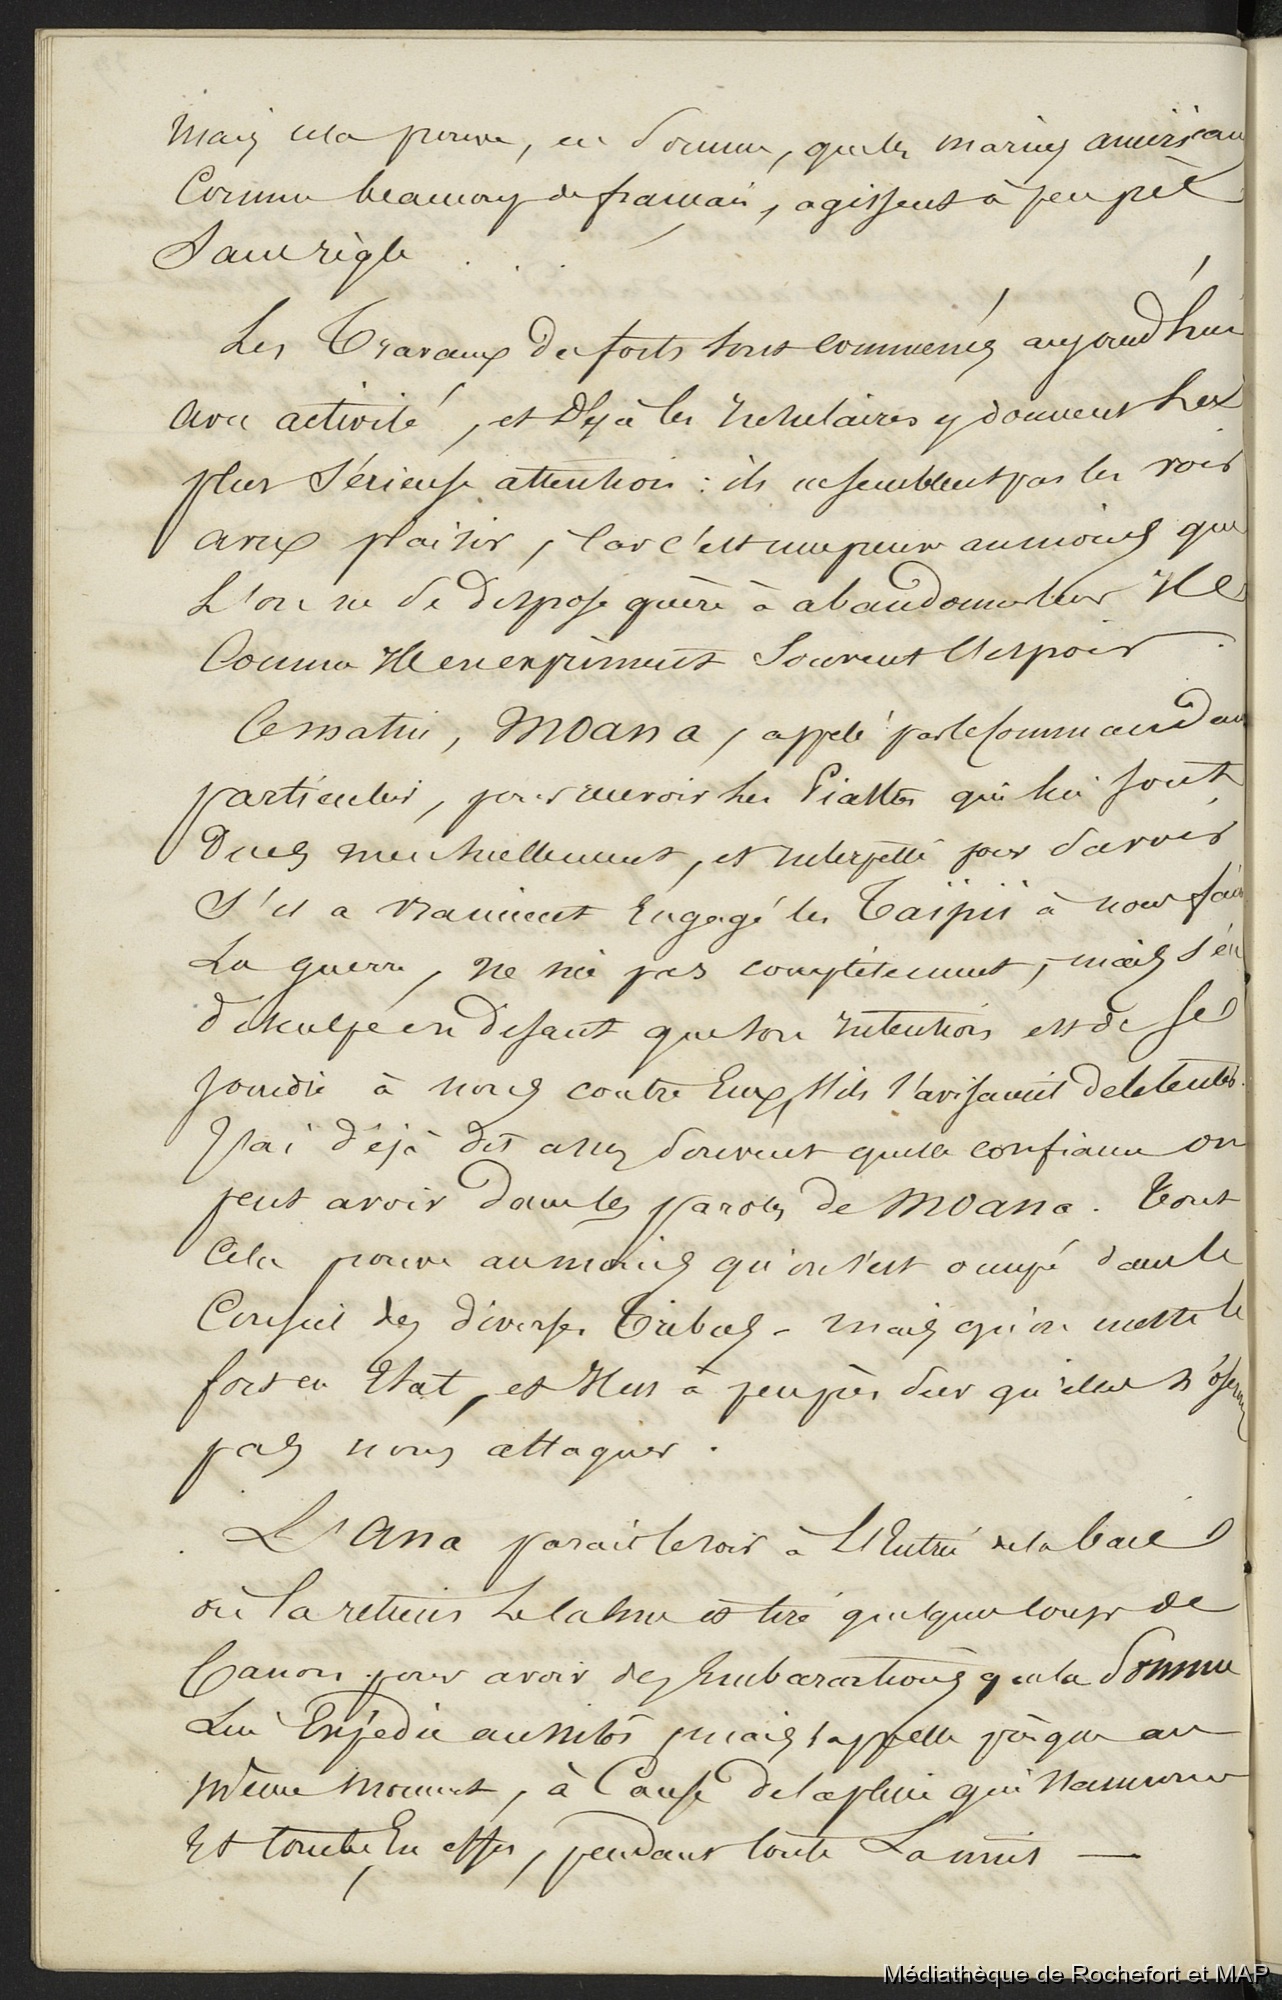 Mais cela prouve, en somme, que les marins américains
Comme beaucoup de français, agissent à peu près
Sans règle
Les Travaux des forts sont commencés aujourd'hui
avec activité, et déjà les insulaires y donnent la
plus Sérieuse attention : ils ne semblent pas les voir
avec plaisir, car c'est une preuve au moins que
L'on ne se dispose guère à abandonner leur île
Comme ils en expriment Souvent l'espoir.
Ce matin, Moana, appelé par le Commandant
particulier, pour recevoir les Piastres qui lui sont
dues mensuellement, et interpellé pour savoir
S'il a vraiment Engagé les Taïpii à nous faire
La guerre, ne nie pas complètement, mais s'en
disculpe en disant que son intention est de se
joindre à nous contre Eux, s'ils s'avisaient de le tenter.
J'ai déjà dit assez souvent quelle confiance on
peut avoir dans les paroles de Moana. Tout
Cela prouve au moins qu'on s'est occupé dans le
Conseil des diverses Tribus - mais qu'on mette le
fort en Etat, et il est à peu près sûr qu'elles n'oseront
pas nous attaquer.
L'Ana parait le soir à L'Entrée de la baie
où la retient le calme et tire quelques coups de
Canon pour avoir des Embarcations que la Somme
Lui Expédie aussitôt, mais rappelle presque au
même moment, à Cause de la pluie qui
Et tombe En effet, pendant toute La nuit —
Médiathèque de Rochefort et MAP